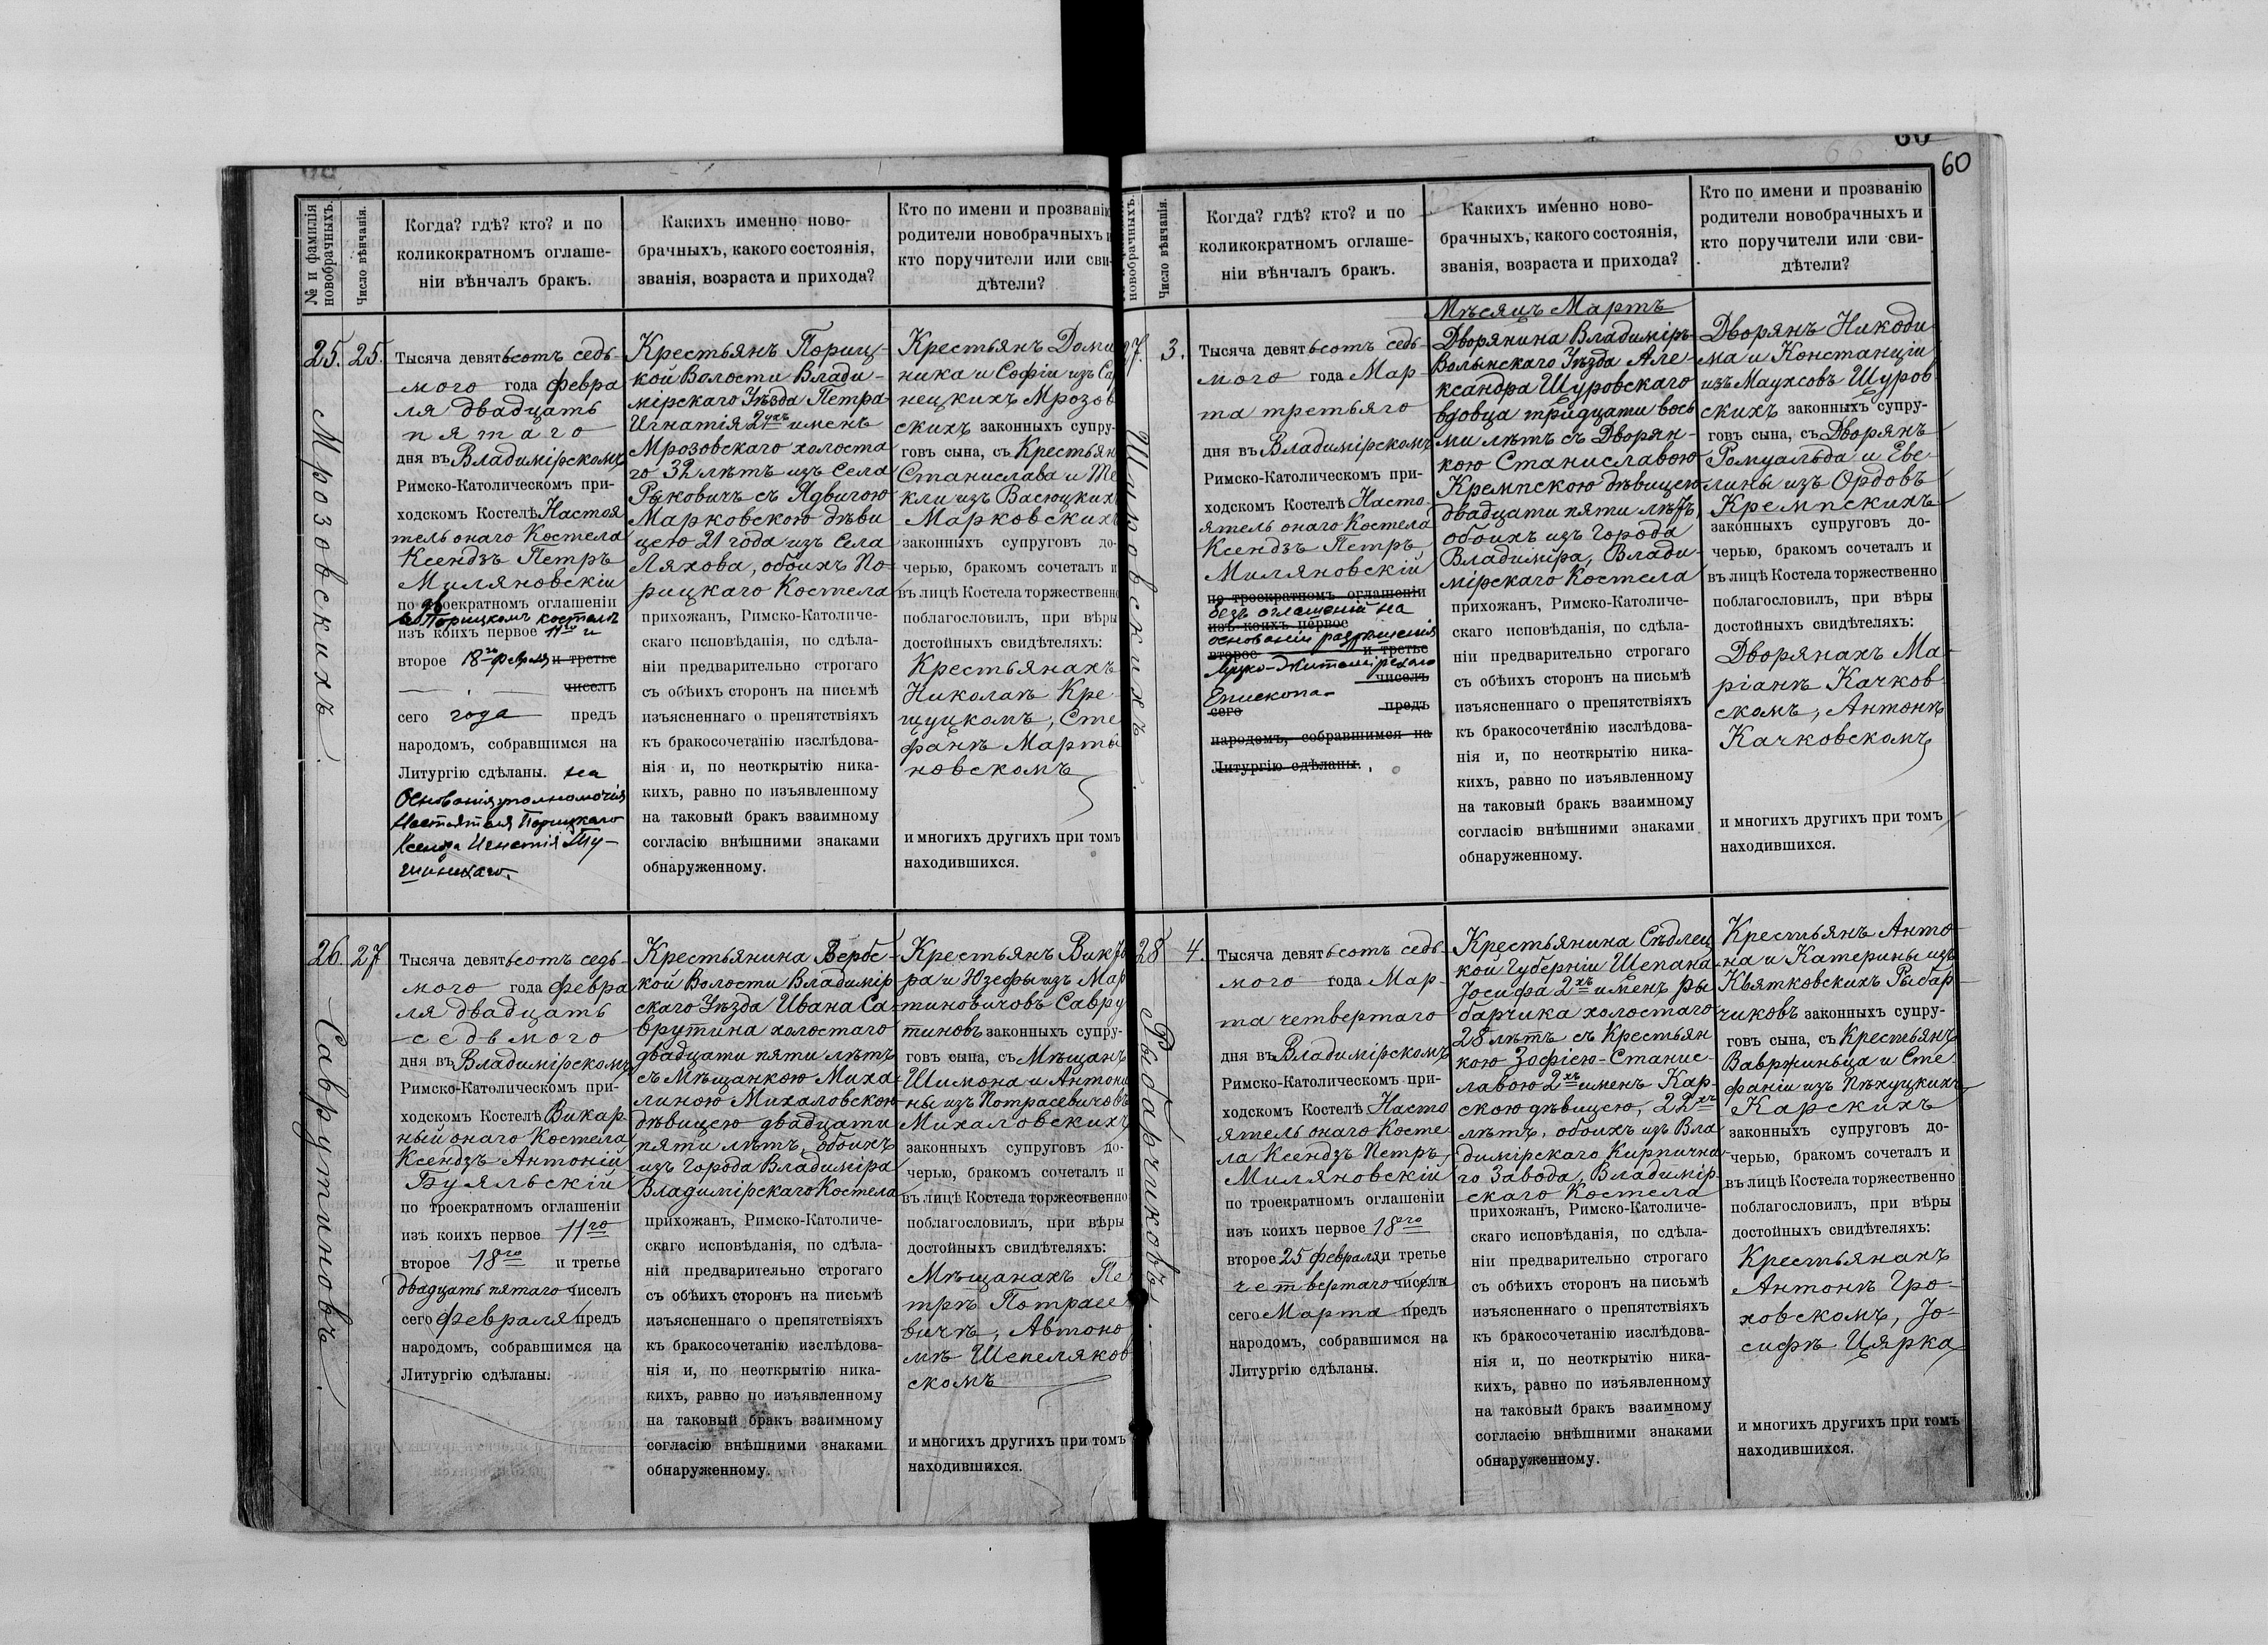 60
60
№ и фамилія новобрачныхъ.
Число вѣнчанія.
Когда? гдѣ? кто? и по
коликократномъ оглаше-
ніи вѣнчалъ бракъ.
Какихъ именно ново-
брачныхъ, какого состоянія,
званія, возраста и прихода?
Кто по имени и прозванію
родители новобрачныхъ и
кто поручители или сви-
дѣтели?
25.
25.
Мрозовскихъ.
Тысяча девятьсотъ седь-
мого года февра
ля двадцать
пятаго
дня въ Владимірскомъ
Римско-Католическомъ при-
ходскомъ Костелѣ Настоя
тель онаго Костела
Ксендзъ Петръ
Миляновскій
по двоекратномъ оглашеніи
въ Порицкомъ костелѣ
изъ коихъ первое 11го и
второе 18го февраля и третье
чиселъ
сего года предъ
народомъ, собравшимся на
Литургію сдѣланы. на
Основанія уполномочія
Настоятеля Порицкаго
Ксендза Игнатія
Крестьянъ Пориц-
кой Волости Влади-
мірскаго Уѣзда Петра-
Игнатія 2ухъ именъ
Мрозовскаго холоста
го 32 лѣтъ изъ Села
Рыковичъ съ Ядвигою
Марковскою дѣви
цею 21 года изъ Села
Ляхова, обоихъ По-
рицкаго Костела
прихожанъ, Римско-Католиче-
скаго исповѣданія, по сдѣла-
ніи предварительно строгаго
съ обѣихъ сторонъ на письмѣ
изъясненнаго о препятствіяхъ
къ бракосочетанію изслѣдова-
нія и, по неоткрытію ника-
кихъ, равно по изъявленному
на таковый бракъ взаимному
согласію внѣшними знаками
обнаруженному.
Крестьянъ Доми
ника и Софіи изъ Са
нецкихъ Мрозов
скихъ законныхъ супру-
говъ сына, съ Крестьян
Станислава и Те
кли изъ Васюцких
Марковских
законныхъ супруговъ до-
черью, бракомъ сочеталъ и
въ лицѣ Костела торжественно
поблагословилъ, при вѣры
достойныхъ свидѣтеляхъ:
Крестьянахъ
Николаѣ Кре-
щуцкомъ, Сте
фанѣ Марты
новскомъ
и многихъ другихъ при томъ
находившихся.
26.
27
Саврутиновъ.
Тысяча девятьсотъ седь-
мого года февра
ля двадцать
седьмого
дня въ Владимірскомъ
Римско-Католическомъ при-
ходскомъ Костелѣ Викар
ный онаго Костела
Ксендзъ Антоній
Буяльскій
по троекратномъ оглашеніи
изъ коихъ первое 11го
второе 18го и третье
двадцать пятаго чиселъ
сего февраля предъ
народомъ, собравшимся на
Литургію сдѣланы.
Крестьянина Вербс-
кой Волости Владимір
скаго Уѣзда Ивана Са-
врутина холостаго
двадцати пяти лѣтъ
съ Мѣщанкою Миха-
линою Михаловскою
дѣвицею двадцати
пяти лѣтъ, обоихъ
изъ города Владиміра
Владимірскаго Костела
прихожанъ, Римско-Католиче-
скаго исповѣданія, по сдѣла-
ніи предварительно строгаго
съ обѣихъ сторонъ на письмѣ
изъясненнаго о препятствіяхъ
къ бракосочетанію изслѣдова-
нія и, по неоткрытію ника-
кихъ, равно по изъявленному
на таковый бракъ взаимному
согласію внѣшними знаками
обнаруженному.
Крестьянъ Викто
ра и Юзефы изъ Мар
тиновичовъ Савру
тиновъ законныхъ супру-
говъ сына, съ Мѣщанъ
Шимона и Антони
ны изъ Потрасевичовъ
Михаловскихъ
законныхъ супруговъ до-
черью, бракомъ сочеталъ и
въ лицѣ Костела торжественно
поблагословилъ, при вѣры
достойныхъ свидѣтеляхъ:
Мѣщанахъ Пе
трѣ Потрасе
вичѣ, Автоно
мѣ Шепеляков
скомъ
и многихъ другихъ при томъ
находившихся.
новобрачныхъ.
Число вѣнчанія.
Когда? гдѣ? кто? и по
коликократномъ оглаше-
ніи вѣнчалъ бракъ.
Какихъ именно ново-
брачныхъ, какого состоянія,
званія, возраста и прихода?
Кто по имени и прозванію
родители новобрачныхъ и
кто поручители или сви-
дѣтели?
27.
3.
Щуровскихъ.
Тысяча девятьсотъ седь-
мого года Мар-
та третьяго
дня въ Владимірскомъ
Римско-Католическомъ при-
ходскомъ Костелѣ Насто
ятель онаго Костела
Ксендзъ Петръ
Миляновскій
по троекратномъ оглашеніи
безъ оглашеній на
изъ коихъ первое
основаніи разрѣшенія
второе и третье
Луцко-Житомірскаго
чиселъ
Епископа.
сего предъ
народомъ, собравшимся на
Литургію сдѣланы.
Мѣсяцъ Мартъ
Дворянина Владиміръ-
Волынскаго Уѣзда Але-
ксандра Щуровскаго
вдовца тридцати вось
ми лѣтъ съ Дворян-
кою Станиславою
Кремпскою дѣвицею
двадцати пяти лѣтъ,
обоихъ изъ Города
Владиміра, Влади-
мірскаго Костела
прихожанъ, Римско-Католиче-
скаго исповѣданія, по сдѣла-
ніи предварительно строгаго
съ обѣихъ сторонъ на письмѣ
изъясненнаго о препятствіяхъ
къ бракосочетанію изслѣдова-
нія и, по неоткрытію ника-
кихъ, равно по изъявленному
на таковый бракъ взаимному
согласію внѣшними знаками
обнаруженному.
Дворянъ Никоди
ма и Констанціи
изъ Маухсовъ Щуров
скихъ законныхъ супру-
говъ сына, съ Дворянъ
Ромуальда и Еве-
лины изъ Ордовъ
Кремпскихъ
законныхъ супруговъ до-
черью, бракомъ сочеталъ и
въ лицѣ Костела торжественно
поблагословилъ, при вѣры
достойныхъ свидѣтеляхъ:
Дворянахъ Ма-
ріанѣ Качков
скомъ, Антонѣ
Качковскомъ
и многихъ другихъ при томъ
находившихся.
28
4.
Рыбарчиковъ.
Тысяча девятьсотъ седь-
мого года Мар-
та четвертаго
дня въ Владимірскомъ
Римско-Католическомъ при-
ходскомъ Костелѣ Насто
ятель онаго Косте-
ла Ксендзъ Петръ
Миляновскій
по троекратномъ оглашеніи
изъ коихъ первое 18го
второе 25 февраля и третье
четвертаго чиселъ
сего Марта предъ
народомъ, собравшимся на
Литургію сдѣланы.
Крестьянина Сѣдлец
кой Губерніи Шепана
Іосифа 2хъ именъ Ры
барчика холостаго
28 лѣтъ съ Крестьян
кою Зофіею-Станис-
лавою 2хъ именъ Кар-
скою дѣвицею, 22хъ
лѣтъ, обоихъ изъ Вла
димірскаго Кирпична-
го Завода, Владимір
скаго Костела
прихожанъ, Римско-Католиче-
скаго исповѣданія, по сдѣла-
ніи предварительно строгаго
съ обѣихъ сторонъ на письмѣ
изъясненнаго о препятствіяхъ
къ бракосочетанію изслѣдова-
нія и, по неоткрытію ника-
кихъ, равно по изъявленному
на таковый бракъ взаимному
согласію внѣшними знаками
обнаруженному.
Крестьянъ Анто-
на и Катерины изъ
Квятковскихъ Рыбар-
чиковъ законныхъ супру-
говъ сына, съ Крестьянъ
Вавржиньца и Сте
фаніи изъ Пѣхуцкихъ
Карскихъ
законныхъ супруговъ до-
черью, бракомъ сочеталъ и
въ лицѣ Костела торжественно
поблагословилъ, при вѣры
достойныхъ свидѣтеляхъ:
Крестьянахъ
Антонѣ Гро-
ховскомъ, Іо-
сифѣ Цярка
и многихъ другихъ при томъ
находившихся.